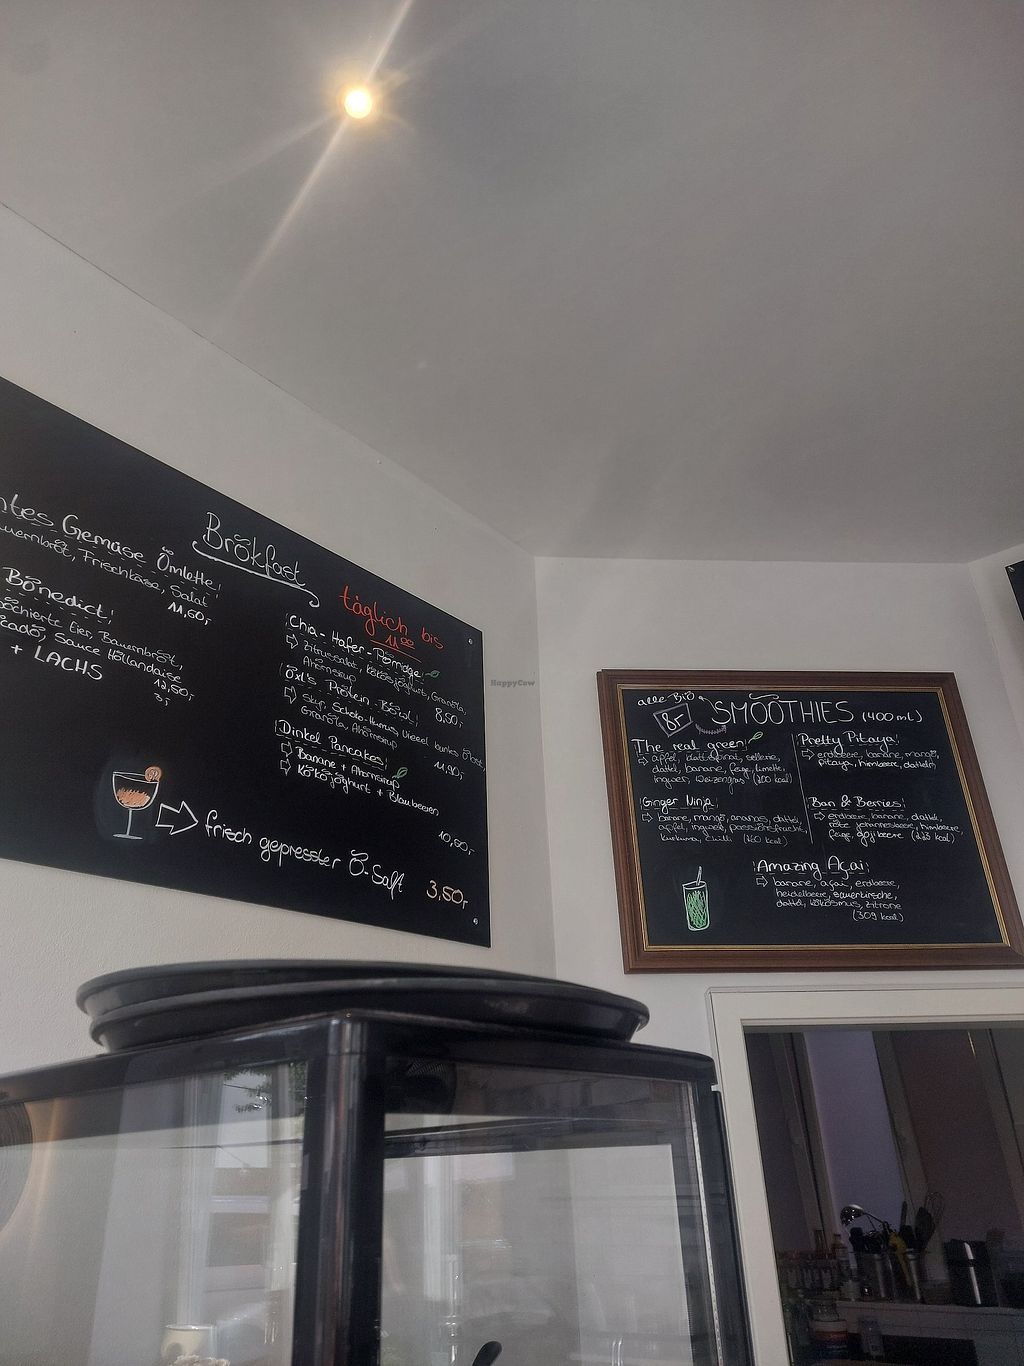 Brökfast
täglich bis
11⁰⁰
Gemüse Ömlette
Frischkäse, Salat
11,60,-
Bönedict
Eier, Bauernbröt,
Sauce Höllandaise
12,50,-
+ LACHS
3,-
Chia-Hafer-Pörridge
Zitrussalat, Kökösjöghurt, Granöla,
Ahörnsirup
8,50,-
Öxl's-Prötein-Böwl
Granöla, Ahörnsirup
11,90,-
Dinkel Pancakes
Banane + Ahörnsirup
Kököjöghurt + Blaubeeren
10,60,-
frisch gepresster Ö-Saft 3,50,-
HappyCow
alle Biö
8,-
SMÖÖTHIES (400 mL)
The real green
apfel, blattspinat, sellerie,
dattel, banane, feige, limette,
ingwer, Weizengras (200 kcal)
Pretty Pitaya
erdbeere, banane, mangö,
pitaya, himbeere, datteln
Ginger Ninja
banane, mangö, ananas, dattel,
apfel, ingwer, passiönsfrucht,
kurkuma, chilli (160 kcal)
Ban & Berries
erdbeere, banane, dattel,
röte jöhannesbeere, himbeere,
feige, göjibeere
Amazing Açai
banane, açai, erdbeere,
heidelbeere, sauerkirsche,
dattel, kökösmus, zitröne
(309 kcal)